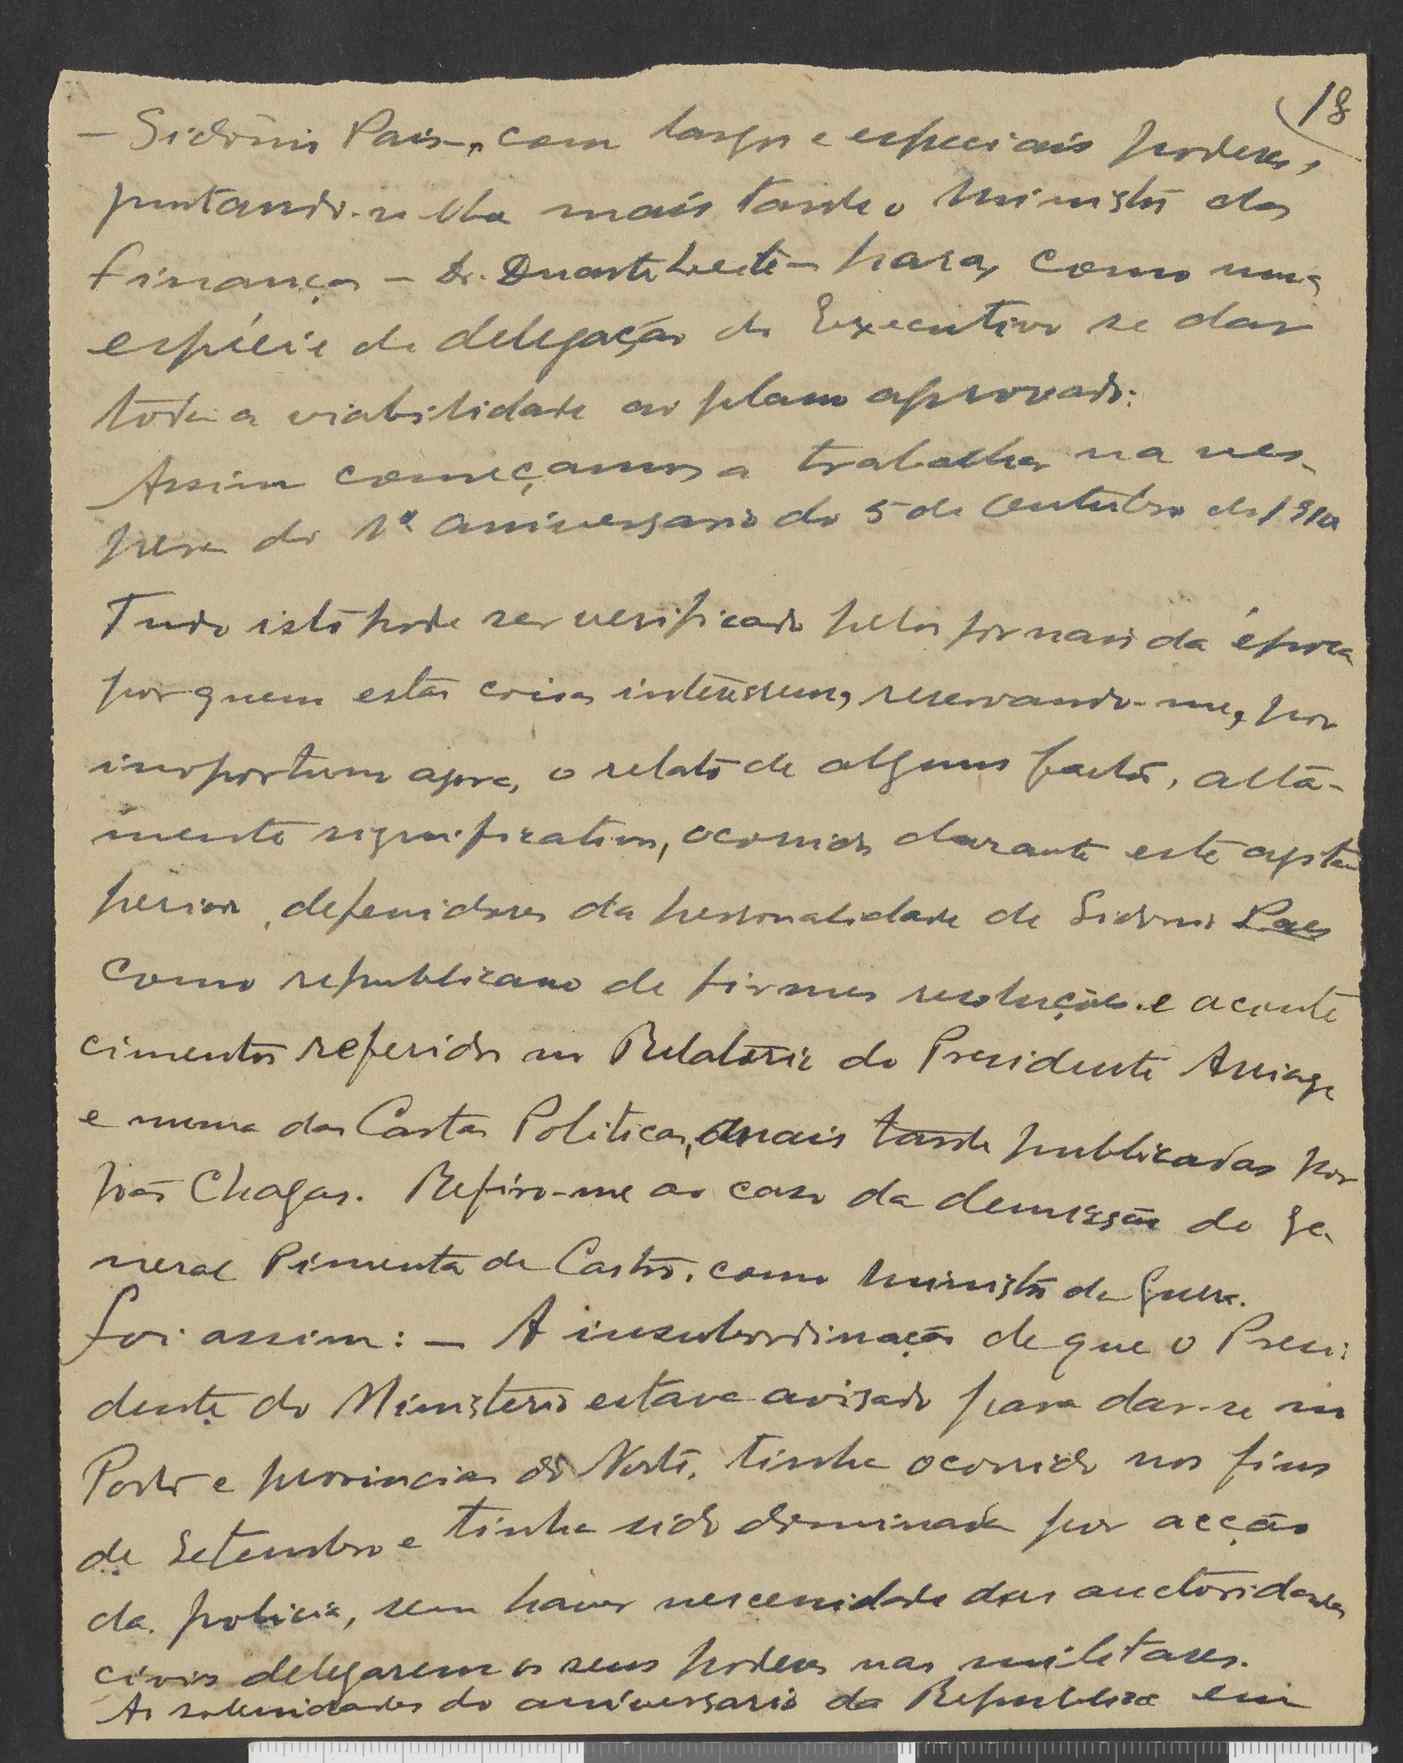 18
— Sidónio Pais —, com largos e especiais poderes,
juntando-se-lhe mais tarde o Ministro das
finanças — Dr. Duarte Leite — para, como uma
espécie de delegação do Executivo se dar
toda a viabilidade ao plano aprovado.
Assim começamos a trabalhar na ves-
pera do 1º aniversario do 5 de Outubro de 1910
Tudo isto pode ser verificado pelos jornais da época
por quem estas coisas interessem, reservando-me, por
inoportuno agora, o relato de alguns factos, alta-
mente significativos, ocorridos durante este
periodo, defenidores da personalidade de Sidonio Paes
como republicano de firmes resoluções e aconte
cimentos referidos no Relatorio do Presidente Arriaga
e numa das Cartas Politicas, mais tarde publicadas por
João Chagas. Refiro-me ao caso da demissão do Ge-
neral Pimenta de Castro, como Ministro da Guerra.
foi assim: — A insubordinação de que o Presi-
dente do Ministerio estava avisado para dar-se no
Porto e provincias do Norte, tinha ocorrido nos fins
de Setembro e tinha sido dominada por acção
da policia, sem haver necessidade das auctoridades
civis delegarem os seus poderes nas militares.
As solenidades do aniversario da Republica em